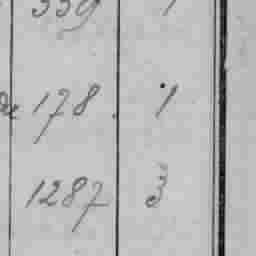 339 1
178. 1
1287 3